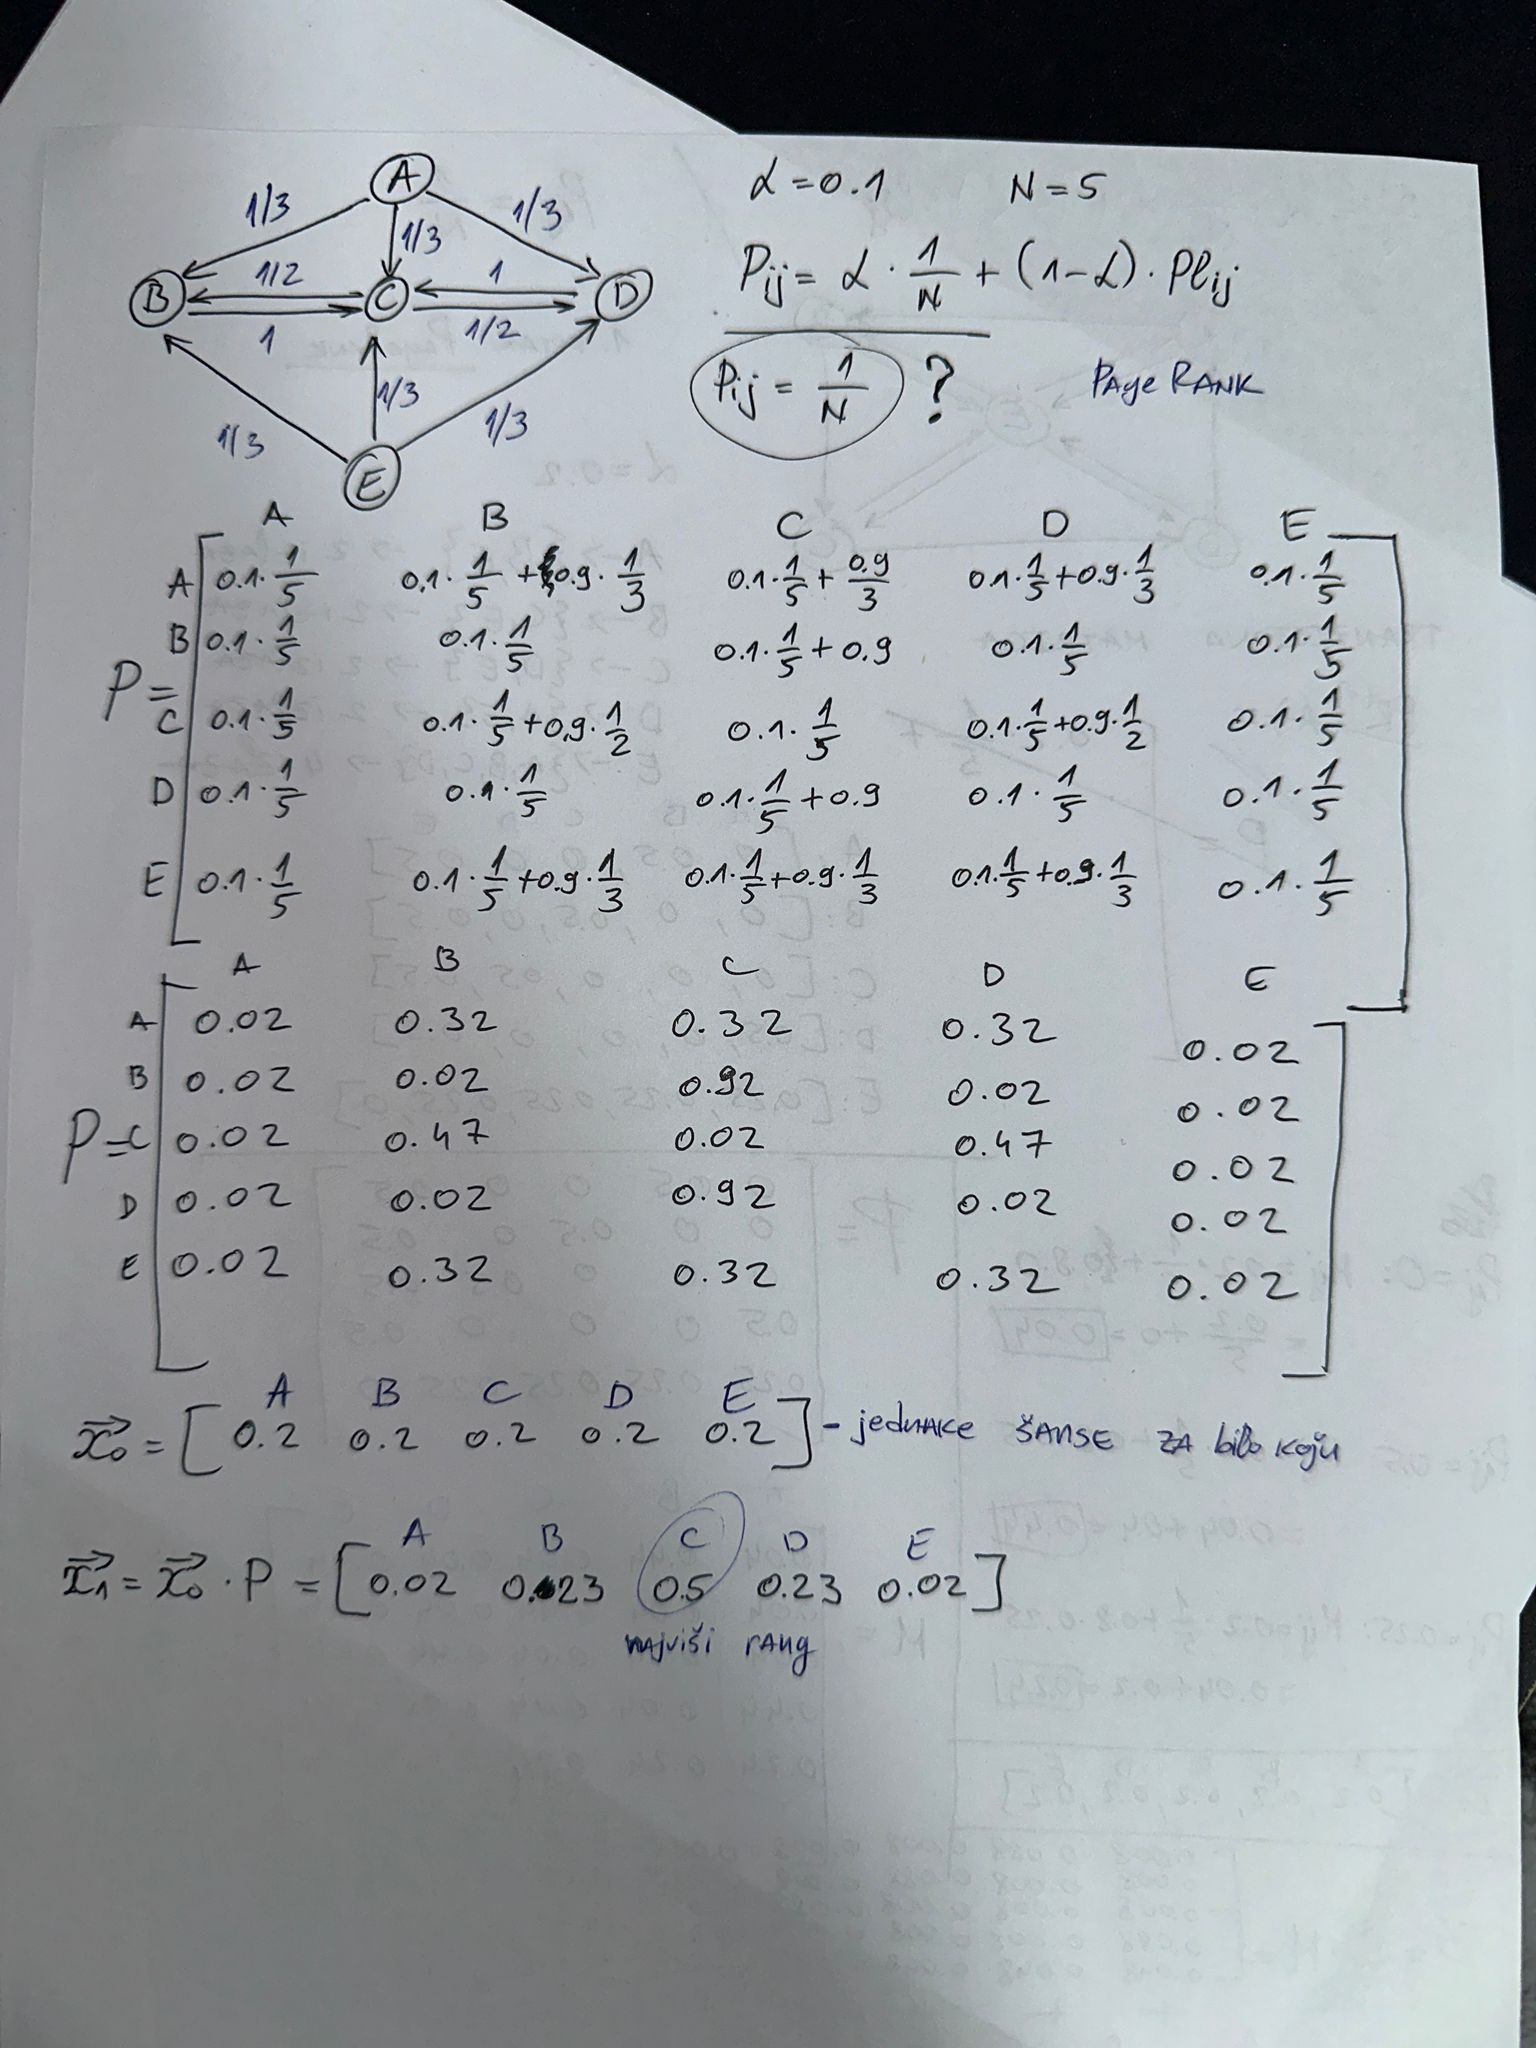 A
1/3 1/3 1/3
B 1/2 C 1 D
1 1/2
1/3 1/3 1/3
E
α = 0.1 N = 5
Pij = α · 1/N + (1-α) · Plij
Pij = 1/N ?
Page RANK
A B C D E
A 0.1·1/5 0.1·1/5+0.9·1/3 0.1·1/5+0.9/3 0.1·1/5+0.9·1/3 0.1·1/5
B 0.1·1/5 0.1·1/5 0.1·1/5+0.9 0.1·1/5 0.1·1/5
P =
C 0.1·1/5 0.1·1/5+0.9·1/2 0.1·1/5 0.1·1/5+0.9·1/2 0.1·1/5
D 0.1·1/5 0.1·1/5 0.1·1/5+0.9 0.1·1/5 0.1·1/5
E 0.1·1/5 0.1·1/5+0.9·1/3 0.1·1/5+0.9·1/3 0.1·1/5+0.9·1/3 0.1·1/5
A B C D E
A 0.02 0.32 0.32 0.32 0.02
B 0.02 0.02 0.92 0.02 0.02
P = C 0.02 0.47 0.02 0.47 0.02
D 0.02 0.02 0.92 0.02 0.02
E 0.02 0.32 0.32 0.32 0.02
A B C D E
x₀ = [ 0.2 0.2 0.2 0.2 0.2 ] - jednake šanse za bilo koju
A B C D E
x₁ = x₀ · P = [ 0.02 0.23 0.5 0.23 0.02 ]
najviši rang